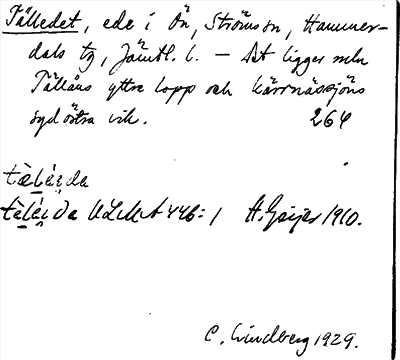 Tälledet, ede i Ön, Ströms sn, Hammer-
dals tg, Jämtl. l. – Det ligger mln
Tällåns yttre lopp och Kärrnässjöns
sydöstra vik. 264
tèléda
tèléda ULMA 446:1 H. Geijer 1910.
C. Lindberg 1929.